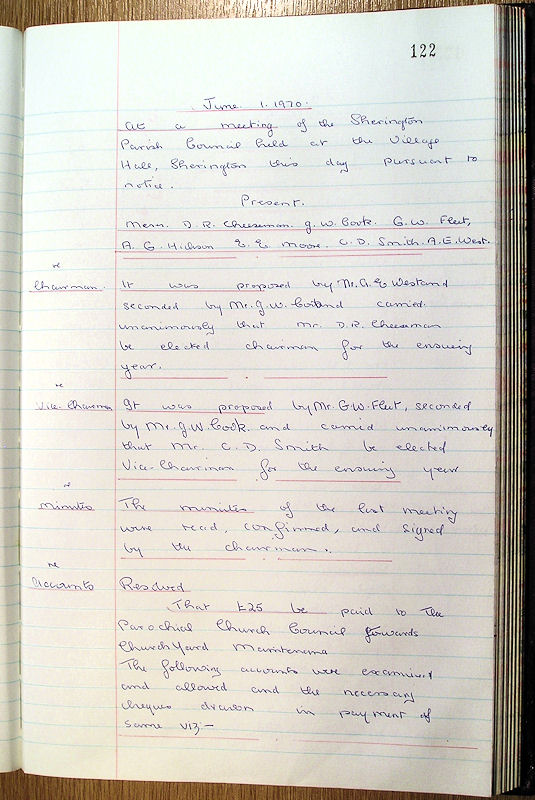 122
June 1. 1970.
At a meeting of the Sherington
Parish Council held at the Village
Hall, Sherington this day pursuant to
notice.
Present.
Messrs. D.R. Cheeseman. J.W. Cook. G.W. Fleet,
A. G. Hickson E. E. Moore. C. D. Smith. A.E. West.
re
Chairman.
It was proposed by Mr. A. E West and
seconded by Mr. J. W. Cook and carried
unanimously that Mr. D.R. Cheeseman
be elected chairman for the ensuing
year.
re
Vice-Chairman
It was proposed by Mr. G.W. Fleet, seconded
by Mr. J.W. Cook. and carried unanimously
that Mr. C. D. Smith be elected
Vice-Chairman for the ensuing year
re
Minutes
The minutes of the last meeting
were read, confirmed, and signed
by the chairman.
re
Accounts
Resolved
That £25 be paid to the
Parochial Church Council towards
Church Yard Maintenance
The following accounts were examined
and allowed and the necessary
cheques drawn in payment of
same viz:-